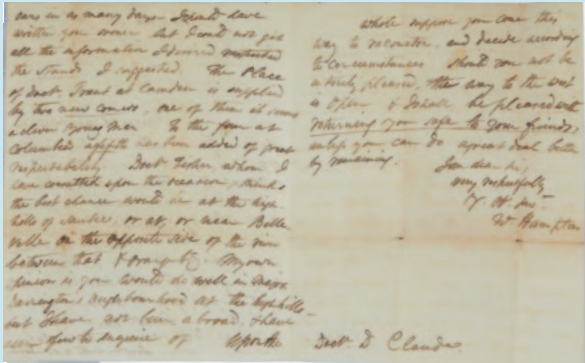 ears in as many days I should have
written you sooner but I could not give
all the information I desired
the stands I suggested. The Place
of Doct. Trent at Camden is supplied
by two new comers, one of them it seems
a clever young Man To the four at
Columbia a fifth has been added of great
respectability. Doct Fisher, whom I
have consulted upon the occasion, thinks
the best chance would be at the high
hills of Santee, or at, or near Belle
ville on the opposite side of the river
between that & Orangebg. My own
opinion is you would do well in Major
neighbourhood at the high hills
but I have not been abroad, & have
few to enquire of Upon the
whole suppose you come this
way to reconoitre, and decide according
to circumstances should you not be
entirely pleased, the way to the west
is open & I shall be pleased with
returning you safe to your friends,
unless you can do a great deal better
by remaining.
I am dear Sir,
very respectfully
Y H Svt
W Hampton
Doct. D Claude